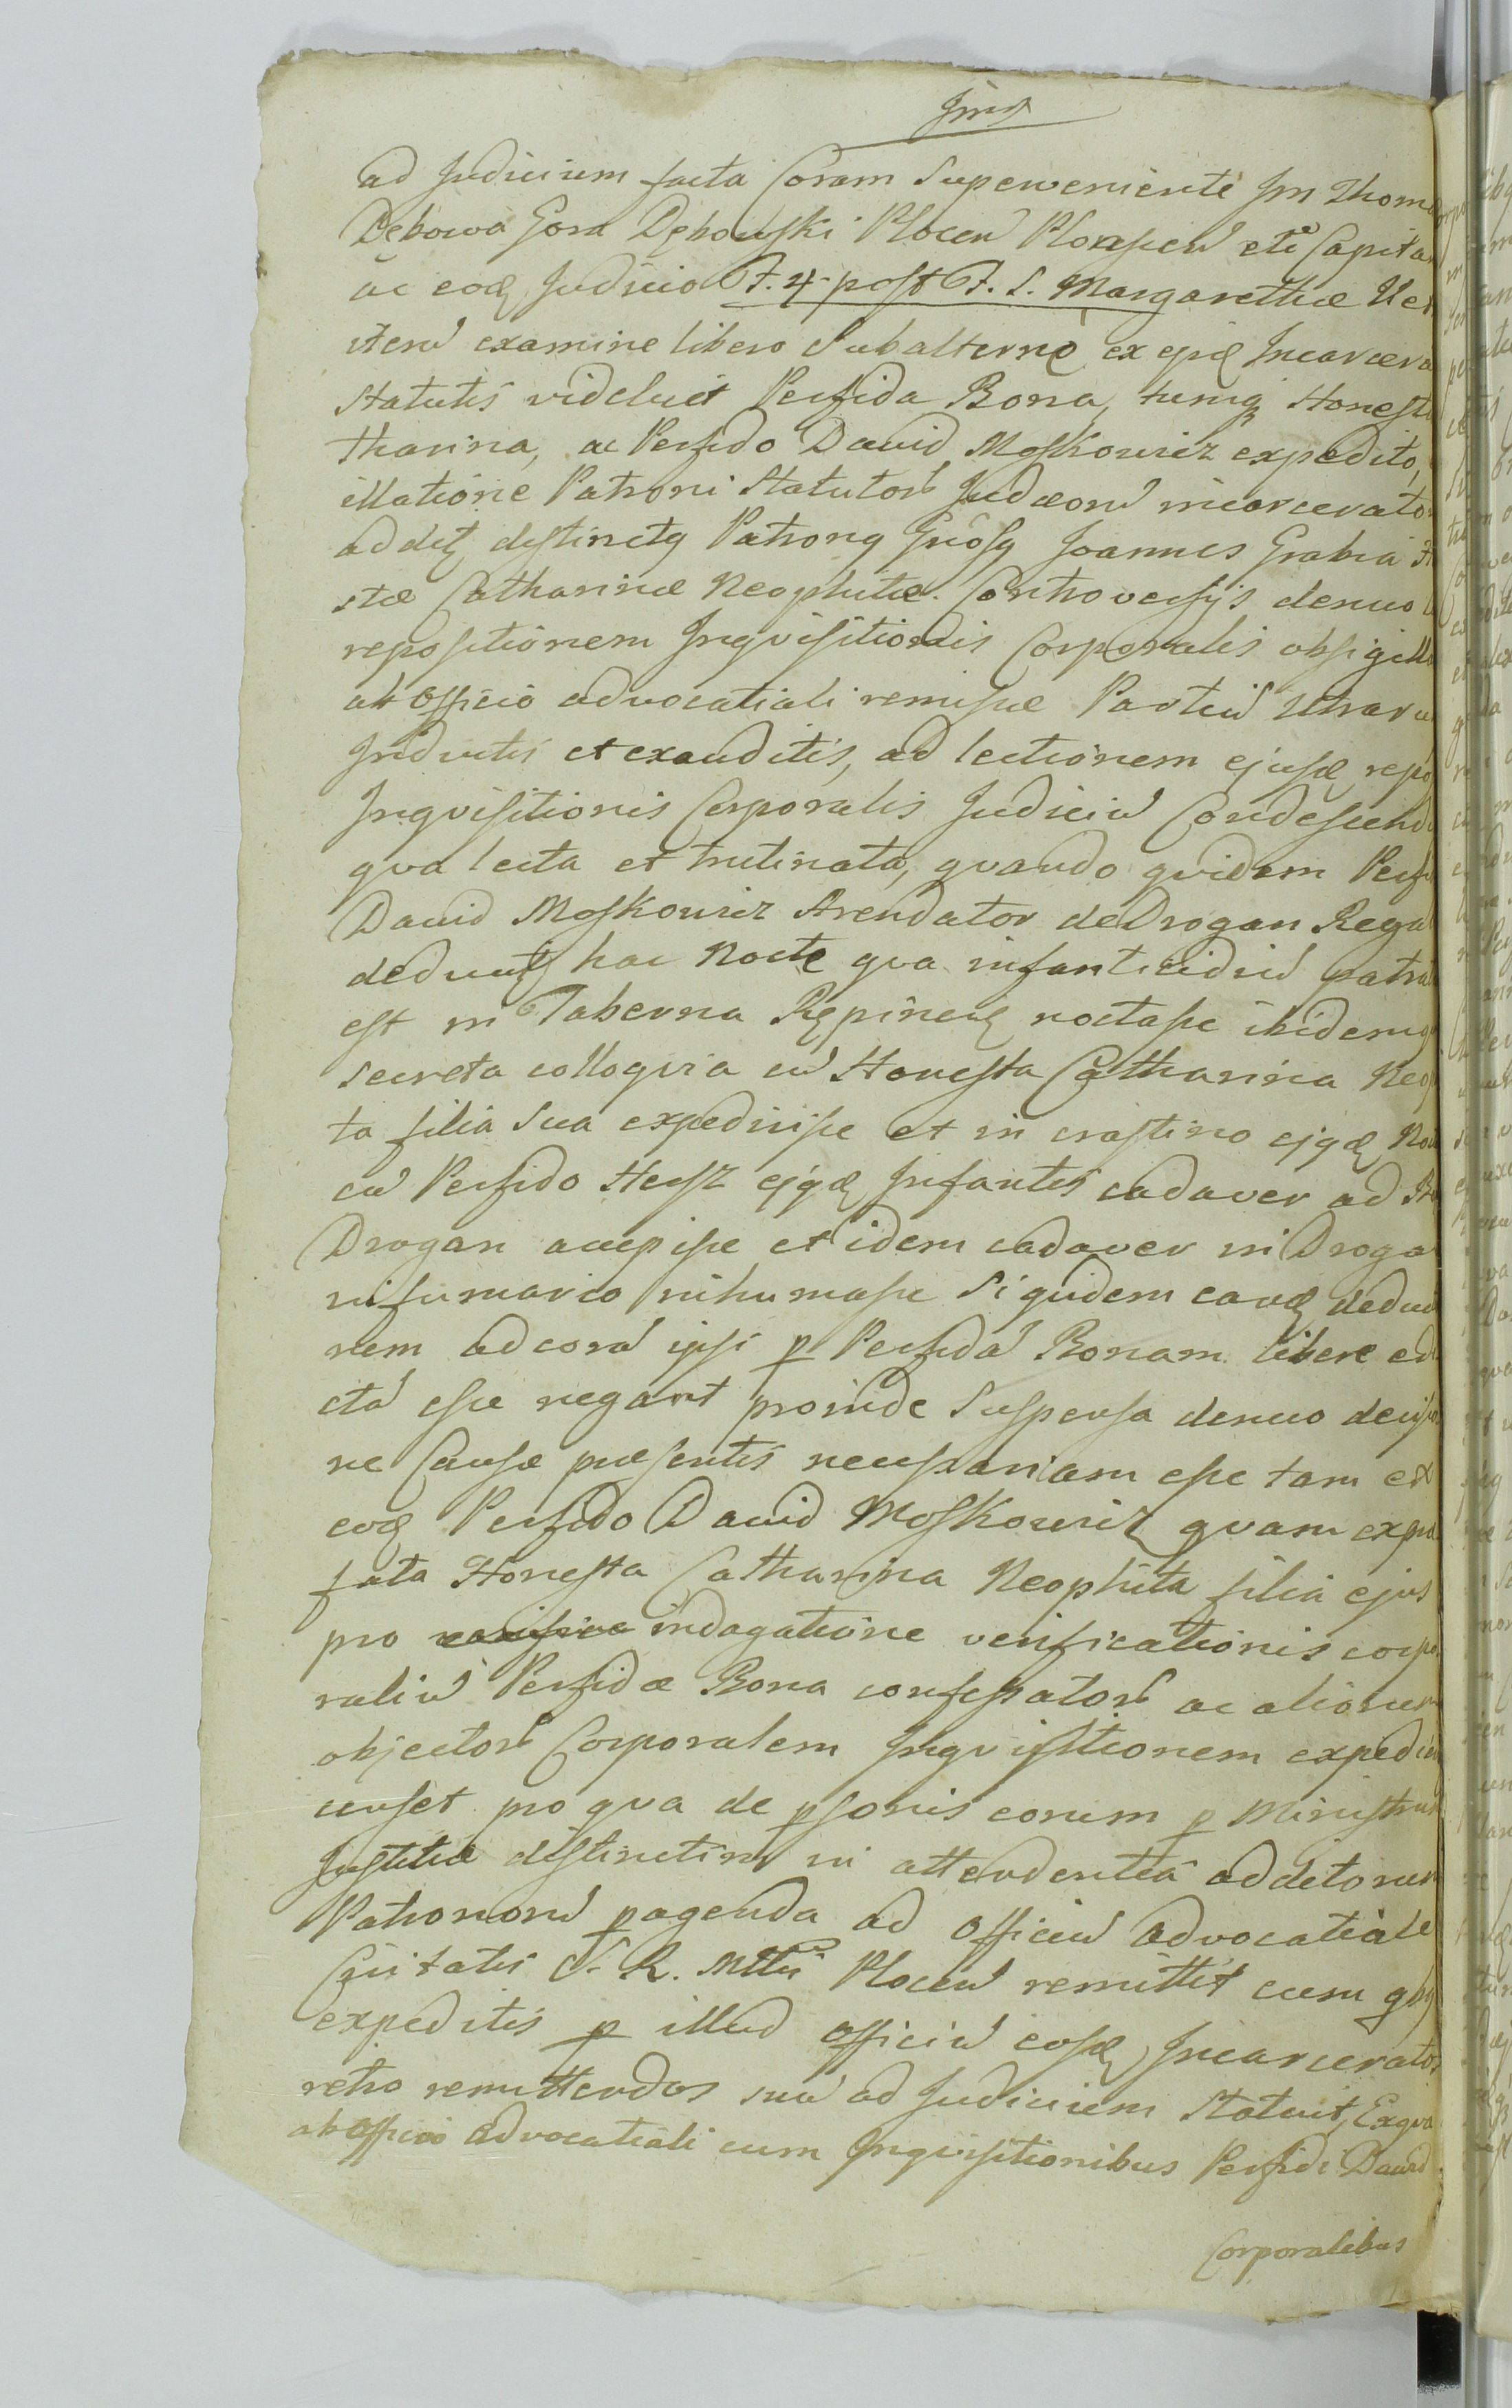 ad Judicium facta Coram Superveniente Jm Thoma
Dębowa Gora Dębowski Plocen Plonscen etc Capita
ac eoq Judicio F. 4 post F. S. Margarethæ Ver
item examine libero Subalterno ex ejsd Incarcera
statutis videlicet Perfida Bona, tumq Honesta
tharina, ac Perfido David Moskowicz expedito,
illatione Patroni Statutor Judæorum incarcerator
addit distinctq Patronq Gnosq Joannes Grabia
stæ Catharinæ Neophitæ. Controversijs denuo
repositionem Inqvisitionis Corporalis obsigill
ab Officio advocatiali remissæ Partiu Utraru
Inductis et exauditis, ad lectionem ejusd repo
Inqvisitionis Corporalis Judiciu Condescend
qva lecta et trutinata, qvando qvidem Perfi
David Moskowicz Arendator de Drogan Regal
deducit hac Nocte qva infanticidiu patra
est in Taberna Rępinen noctasse ibidemq
secreta colloqvia cu Honesta Catharina Neop
ta filia Sua expedivisse et in crastino ejqd
cu Perfido Hersz ejqd Infantis cadaver ad
Drogan accepisse et idem cadaver in Droga
in fumario inhumasse Siqvidem eaqd deduc
nem ad cora ipsi p Perfida Bonam libere ed
cta esse negant proinde Suspensa denuo decisio
ne Causæ præsentis necessariam esse tam ex
eoq Perfido David Moskowicz qvam expræ
fata Honesta Catharina Neophita filia ejus
pro indagatione verificationis corpo
raliu Perfidæ Bona confessator ac aliorum
objector Corporalem Inqvisitionem expedien
censet pro qva de psonis eorum p Ministrum
Justitiæ distinctim in attendentia additorum
Patronoru pagenda ad Officiu Advocatiale
Civitatis S. R. Mttis Plocen remittit cum qbq
expeditis p illud Officiu eosd Incarcerator
retro remittendos suu ad Judicium statuit, Exqva
ab Officio Advocatiali cum Inqvisitionibus Perfidi David
Corporalibus